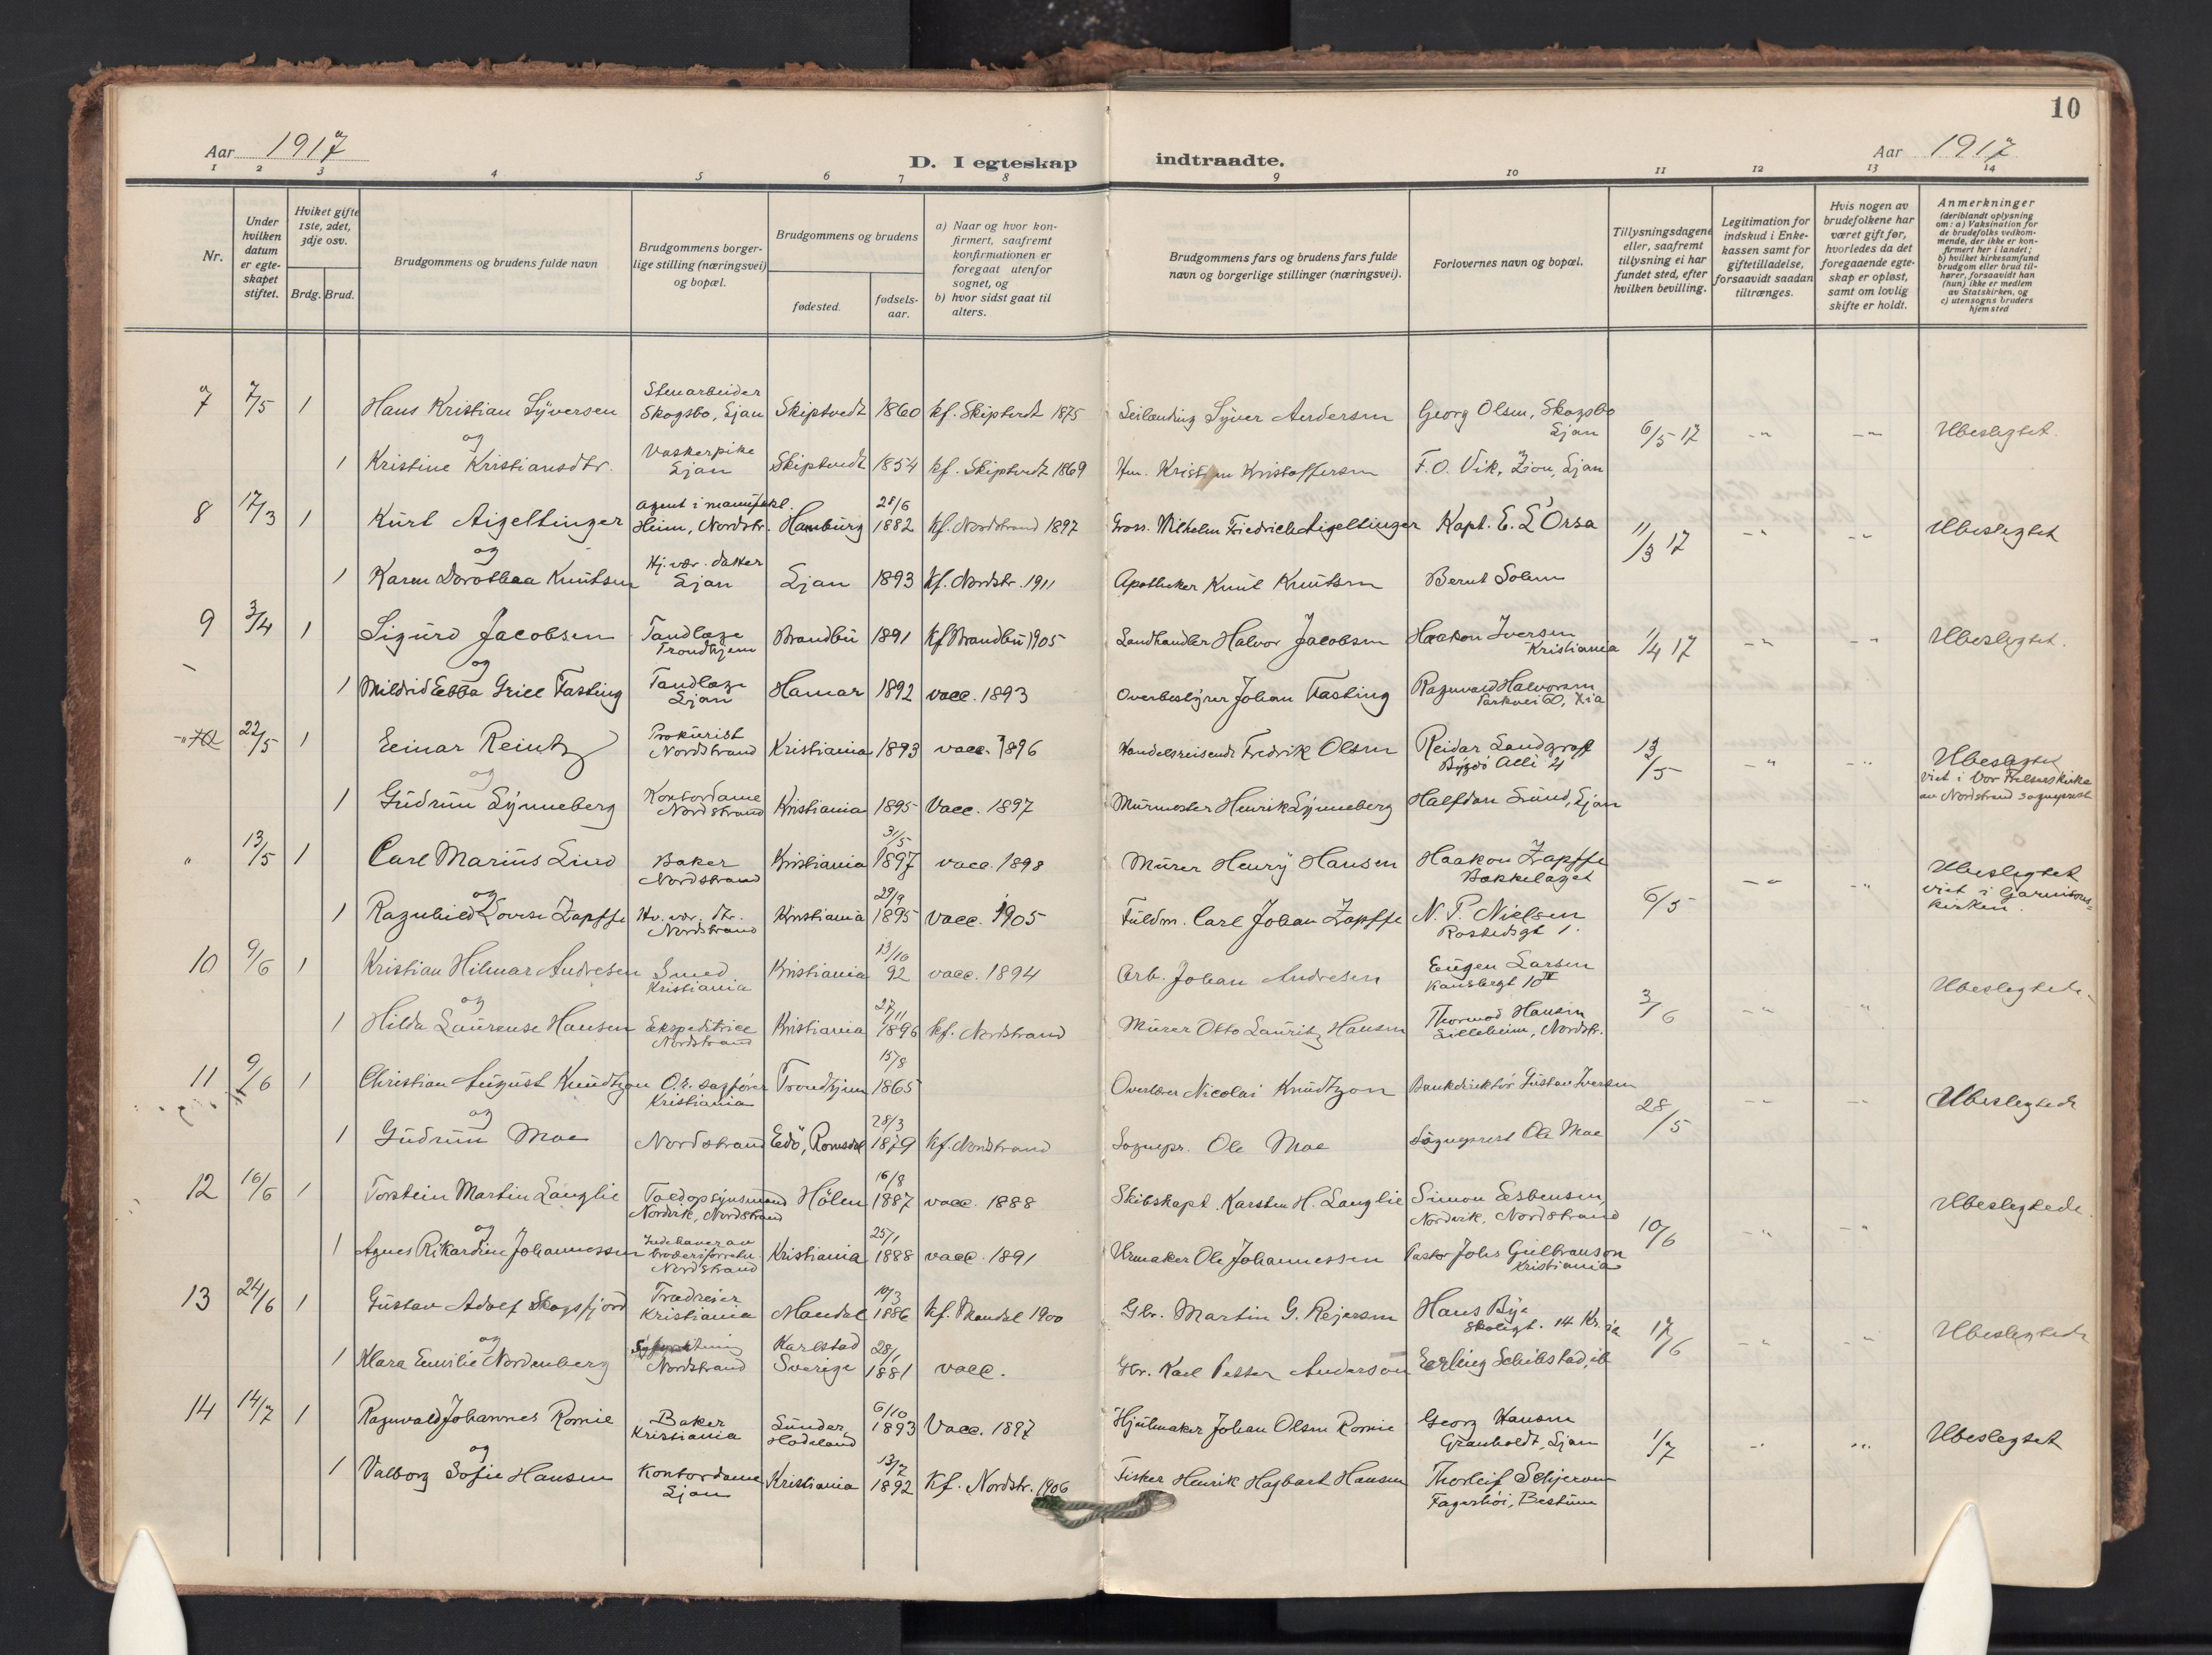 10
Aar 1917
D. I egteskap indtraadte.
Aar 1917
1 2 3 4 5 6 7 8 9 10 11 12 13 14
Nr.
Under hvilken datum er egteskapet stiftet.
Hviket gifte 1ste, 2det, 3dje osv.
Brdg. Brud.
Brudgommens og brudens fulde navn
Brudgommens borgerlige stilling (næringsvei) og bopæl.
Brudgommens og brudens
fødested.
fødselsaar.
a) Naar og hvor konfirmert, saafremt konfirmationen er foregaat utenfor sognet, og
b) hvor sidst gaat til alters.
Brudgommens fars og brudens fars fulde navn og borgerlige stillinger (næringsvei).
Forlovernes navn og bopæl.
Tillysningsdagene eller, saafremt tillysning ei har fundet sted, efter hvilken bevilling.
Legitimation for indskud i Enkekassen samt for giftetilladelse, forsaavidt saadan tiltrænges.
Hvis nogen av brudefolkene har været gift før, hvorledes da det foregaaende egteskap er opløst, samt om lovlig skifte er holdt.
Anmerkninger (deriblandt oplysning om: a) Vaksination for de brudefolks vedkommende, der ikke er konfirmert her i landet; b) hvilket kirkesamfund brudgom eller brud tilhører, forsaavidt han (hun) ikke er medlem av Statskirken, og c) utensogns bruders hjemsted
7 7/5 1 Hans Kristian Syversen Stenarbeider Skogsbo, Ljan Skiptvedt 1860 kf. Skiptvedt 1875 Syver Andersen Georg Olsen, Skogsbo Ljan 6/5 17 -"- -"- Ubeslegtet.
og
1 Kristine Kristiansdtr. Vaskerpike Ljan Skiptvedt 1854 kf. Skiptvedt 1869 Hm. Kristian Kristoffersen F. O. Vik, Zion, Ljan
8 17/3 1 Kurt Aigeltinger Agent i manufakt. Heim, Nordstr. Hamburg 28/6 1882 kf. Nordstrand 1897 Gross. Wilhelm Friedrich Aigeltinger Kapt. E. L'Orsa 11/3 17 -"- -"- Ubeslegtet
og
1 Karen Dorothea Knutsen Hj. vær. datter Ljan Ljan 1893 kf. Nordstr. 1911 Apotheker Knut Knutsen Bernt Solem
9 3/4 1 Sigurd Jacobsen Tandlæge Trondhjem Brandbu 1891 kf Brandbu 1905 Landhandler Halvor Jacobsen Haakon Iversen Kristiania 1/4 17 -"- -"- Ubeslegtet.
og
1 Mildrid Ebba Grill Fasting Tandlæge Ljan Hamar 1892 vacc. 1893 Overbestyrer Johan Fasting Ragnvald Halvorsen Parkvei 60, Kia
-"- 10 22/5 1 Einar Reintz Prokurist Nordstrand Kristiania 1893 vacc. 1896 Handelsreisende Fredrik Olsen Reidar Landgraff Bygdö Alle 4 13/5 -"- -"- Ubeslegtet, viet i Vor Frelsers kirke av Nordstrand sogneprest
og
1 Gudrun Lynneberg Kontordame Nordstrand Kristiania 1895 Vacc. 1897 Murmester Henrik Lynneberg Halfdan Lund, Ljan
" 13/5 1 Carl Marius Lind Baker Nordstrand Kristiania 31/5 1897 vacc. 1898 Murer Henry Hansen Haakon Zapffe Bekkelaget 6/5 -"- -"- Ubeslegtet viet i Garnisonskirken.
og
1 Ragnhild Lovise Zapffe Hv. vær. dtr. Nordstrand Kristiania 29/9 1895 vacc. 1905 Fuldm. Carl Johan Zapffe N. P. Nielsen Rostedsgt 1.
10 9/6 1 Kristian Hilmar Andresen Smed Kristiania Kristiania 13/10 92 vacc. 1894 Arb. Johan Andresen Eugen Larsen 10 IV 3/6 -"- -"- Ubeslegtede
og
1 Hilda Laurense Hansen Ekspeditrice Nordstrand Kristiania 27/11 1896 kf. Nordstrand Murer Otto Lauritz Hansen Thormod Hansen Lilleheim, Nordstr.
11 9/6 1 Christian August Knudtzon O.r. sagfører Kristiania Trondhjem 15/8 1865 Overlærer Nicolai Knudtzon Bankdirektør Gustav Iversen 28/5 -"- -"- Ubeslegtede
og
1 Gudrun Moe Nordstrand Edö, Romsdal 28/3 1879 kf. Nordstrand Sognepr. Ole Moe Sogneprest Ole Moe
12 16/6 1 Torstein Martin Langlie Toldopsynsmand Nordvik, Nordstrand Hölen 16/8 1887 vacc. 1888 Skibskapt. Karsten H. Langlie Simon Esbensen, Nordvik, Nordstrand 10/6 -"- -"- Ubeslegtede.
og
1 Agnes Rikardine Johannessen Indehaver av broderiforretn. Nordstrand Kristiania 25/1 1888 vacc. 1891 Urmaker Ole Johannessen Pastor Johs Gulbranson Kristiania
13 24/6 1 Gustav Adolf Skogsfjord Trædreier Kristiania Mandal 10/3 1886 kf. Mandal 1900 Gbr. Martin G. Rejersen Hans Bye Skoligt. 14 Kr.ia 17/6 -"- -"- Ubeslegtede
og
1 Klara Emilie Nordenberg Nordstrand Karlstad Sverige 28/1 1881 vacc. Gbr. Karl Petter Anderson Erling Schibstad, ib
14 14/7 1 Ragnvald Johannes Romie Baker Kristiania Lunder, Hadeland 6/10 1893 Vacc. 1897 Hjulmaker Johan Olsen Romie Georg Hansen Granholdt, Ljan 1/7 -"- -"- Ubeslegtet
og
1 Valborg Sofie Hansen Kontordame Ljan Kristiania 13/7 1892 Kf. Nordstr. 1906 Fisker Henrik Hagbart Hansen Thorleif Schjerven Fagerhöi, Bestum